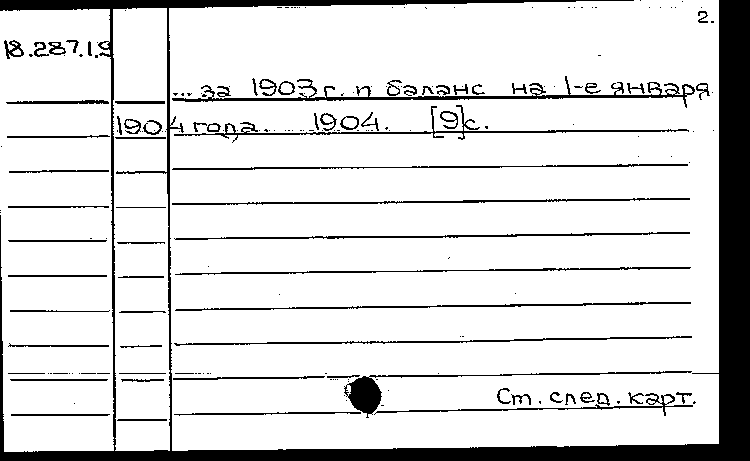 2.
18.287.1.9
... за 1903 г. п баланс на 1-е января
1904 года. 1904. [9]с.
Ст. след. карт.